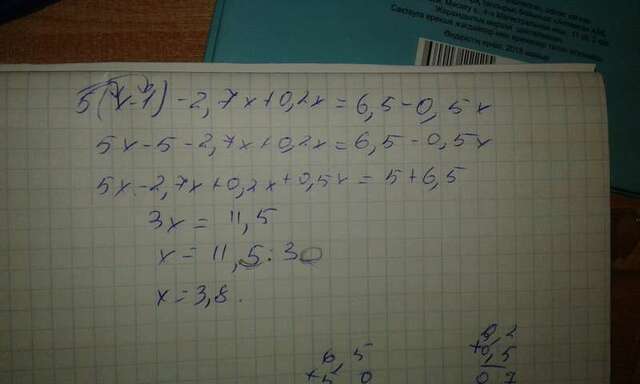 5(x-1)-2,7x+0,2x=6,5-0,5x
5x-5-2,7x+0,2x=6,5-0,5x
5x-2,7x+0,2x+0,5x=5+6,5
3x=11,5
x=11,5:30
x=3,8.
6,5
+5,0
0,2
+0,5
0,7